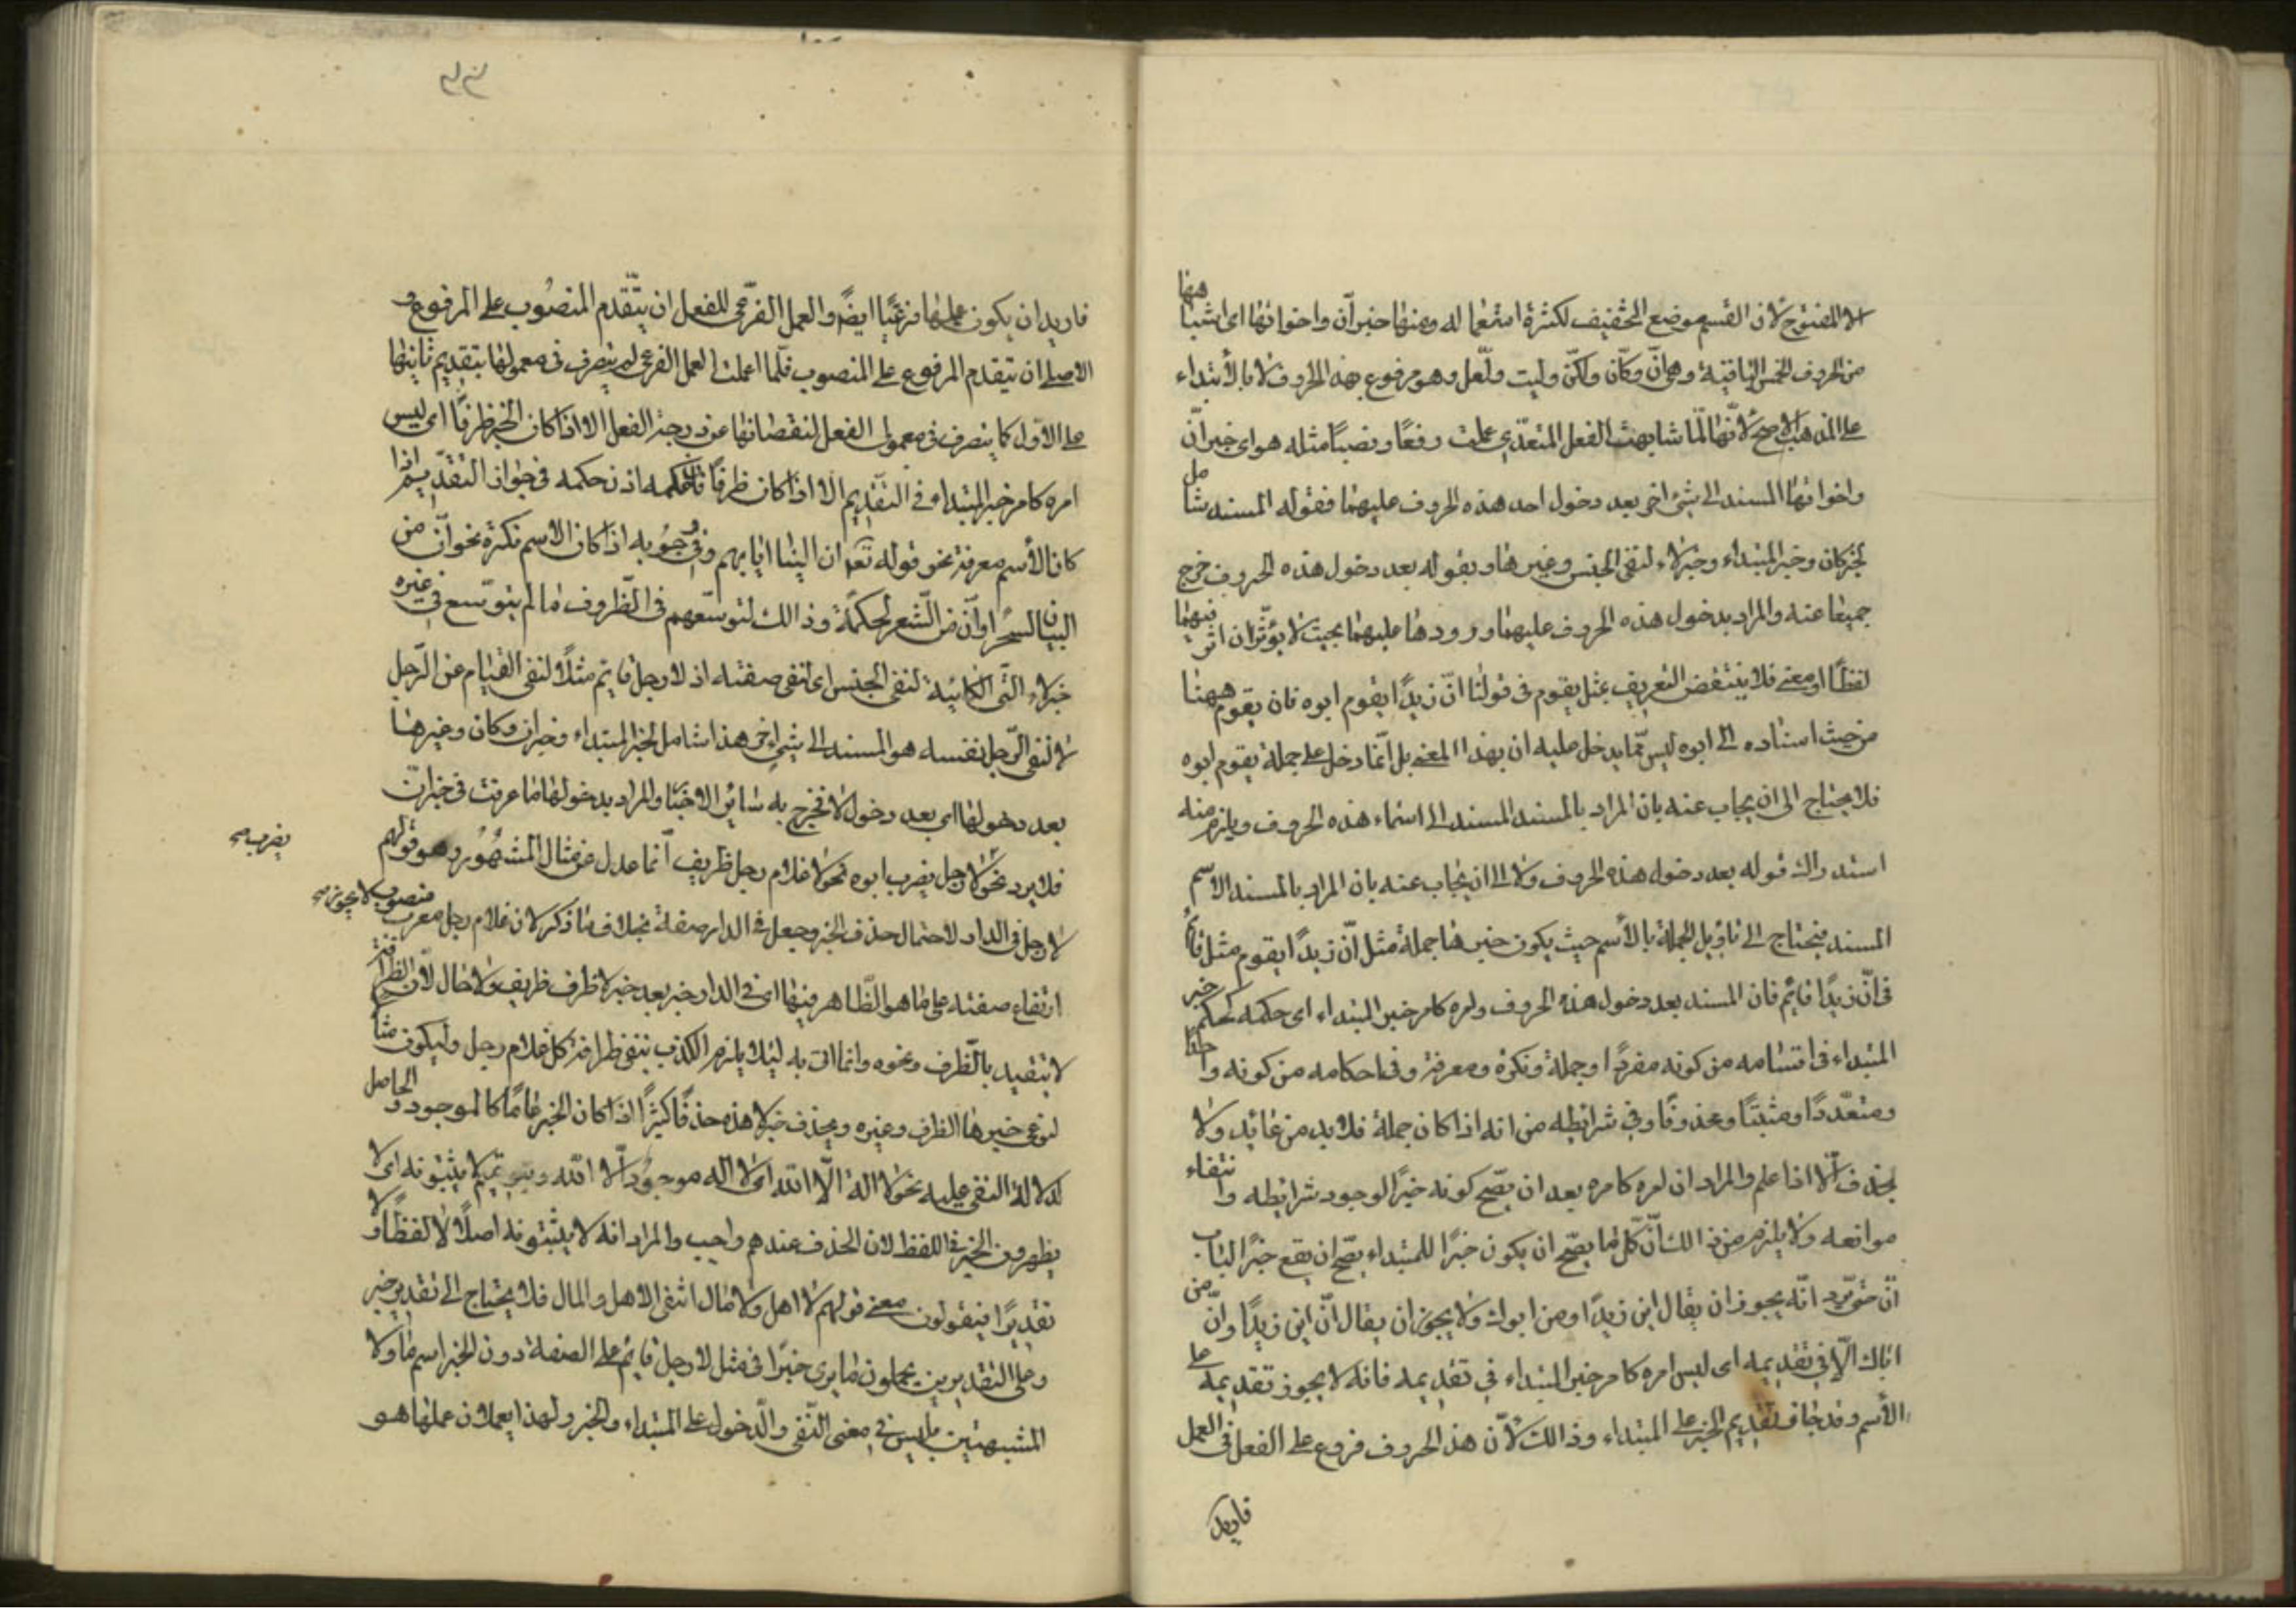 الا المفتوح لان القسم موضع التخفيف لكثرة استعماله ومنها خبر ان واخواتها اى اشباهها
من الحروف الخمس الباقية وهى ان وكان ولكن وليت ولعل وهو مرفوع بهذه الحروف لا بالابتداء
على المذهب الاصح لانها لما شابهت الفعل المتعدى عملت رفعًا ونصبًا مثله هو اى خبر ان
واخواتها المسند الى شئ اخر بعد دخول احد هذه الحروف عليهما فقوله المسند شامل
لخبر كان وخبر المبتداء وخبر لاء لنفى الجنس وغيرها وبقوله بعد دخول هذه الحروف خرج
جميعها عنه والمراد بدخول هذه الحروف عليهما ورودها عليهما بحيث لا يؤثران اثر فيهما
لفظًا او معنى فلا ينتقض التعريف بمثل يقوم فى قولنا ان زيدًا يقوم ابوه فان يقوم ههنا
من حيث اسناده الى ابوه ليس مما يدخل عليه ان بهذا المعنى بل انما دخل على جملة يقوم ابوه
فلا يحتاج الى ان يجاب عنه بان المراد بالمسند المسند الى اسماء هذه الحروف ويلزم منه
استدراك قوله بعد دخول هذه الحروف ولا الى ان يجاب عنه بان المراد بالمسند الاسم
المسند فيحتاج الى تاويل الجملة بالاسم حيث يكون خبرها جملة مثل ان زيدًا يقوم مثل قائم
فى ان زيدًا قائم فان المسند بعد دخول هذه الحروف وامره كامر خبر المبتداء اى حكمه كحكم خبر
المبتداء فى اقسامه من كونه مفردًا وجملة ونكرة ومعرفة وفى احكامه من كونه واحدًا
ومتعددًا ومثبتًا ومحذوفًا وفى شرائطه من انه اذا كان جملة فلا بد من عائد ولا
يحذف الا اذا علم والمراد ان امره كامره بعد ان يصح كونه خبرًا لوجود شرائطه وانتفاء
موانعه ولا يلزم من ذالك ان كل ما يصح ان يكون خبرًا للمبتداء يصح ان يقع خبرًا لباب
ان حتى يرد انه يجوز ان يقال اين زيدًا ومن ابوك ولا يجوز ان يقال ان اين زيدًا وان من
اباك الا فى تقديمه اى ليس امره كامر خبر المبتداء فى تقديمه فانه لا يجوز تقديمه على
الاسم وقد جاز تقديم الخبر على المبتداء وذالك لان هذه الحروف فروع على الفعل فى العمل
فاريد
فاريد ان يكون عملها فرعيًا ايضًا والعمل الفرعى للفعل ان يتقدم المنصوب على المرفوع و
الاصلى ان يتقدم المرفوع على المنصوب فلما اعملت العمل الفرعى لم يتصرف فى معموليها بتقديم ثانيهما
على الاول كما يتصرف فى معمولى الفعل لنقصانها عن درجة الفعل الا اذا كان الخبر ظرفًا اى ليس
امره كامر خبر المبتداء فى التقديم الا اذا كان ظرفًا فان حكمه اذن حكمه فى جواز التقديم اذا
كان الاسم معرفة نحو قوله تعالى ان الينا ايابهم وفى وجوبه اذا كان الاسم نكرة نحو ان من
البيان لسحرًا وان من الشعر لحكمة وذالك لتوسعهم فى الظروف ما لم يتوسع فى غيره
خبر لاء التى الكائنة لنفى الجنس اى لنفى صفته اذ لا رجل قائم مثلًا لنفى القيام عن الرجل
لا لنفى الرجل نفسه هو المسند الى شئ اخر هذا شامل لخبر المبتداء وخبر ان وكان وغيرها
بعد دخولها اى بعد دخول لا فخرج به سائر الاخبار والمراد بدخولها ما عرفت فى خبر ان
فلا يرد نحو لا رجل يضرب ابوه نحو لا غلام رجل ظريف انما عدل عن مثال المشهور وهو قولهم
يضرب صح
لا رجل فى الدار لاحتمال حذف الخبر وجعل فى الدار صفة بخلاف ما ذكر لان غلام رجل معرب منصوب لا يجوز
ارتفاع صفته على ما هو الظاهر فيها اى فى الدار خبر بعد خبر لا ظرف ظريف ولا حال لان الظرافة
لا تتقيد بالظرف ونحوه وانما اتى به لئلا يلزم الكذب بنفى ظرافة كل غلام رجل وليكون مثالًا
لنوعى خبرها الظرف وغيره ويحذف خبر لا هذه حذفًا كثيرًا اذا كان الخبر عامًا كالموجود والحاصل
لدلالة النفى عليه نحو لا اله الا الله اى لا اله موجود الا الله وبنو تميم لا يثبتونه اى لا
يظهرون الخبر فى اللفظ لان الحذف عندهم واجب والمراد انه لا يثبتونه اصلًا لا لفظًا ولا
تقديرًا فيقولون معنى قولهم لا اهل ولا مال انتفى الاهل والمال فلا يحتاج الى تقدير خبر
وعلى التقديرين يحملون ما يرى خبرًا فى مثل لا رجل قائم على الصفة دون الخبر اسم ما ولا
المشبهتين بليس فى معنى النفى والدخول على المبتداء والخبر ولهذا يعملان عملها هو